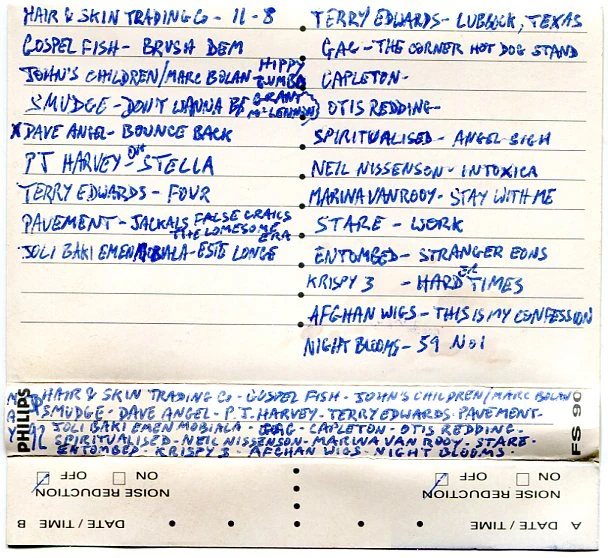 HAIR & SKIN TRADING CO - 11 - 8
GOSPEL FISH - BRUSH DEM
JOHN'S CHILDREN/MARC BOLAN HIPPY GUMBO
SMUDGE - DON'T WANNA BE GRANT McLENNON
X DAVE ANGEL - BOUNCE BACK
PJ HARVEY - OH STELLA
TERRY EDWARDS - FOUR
PAVEMENT - JACKALS FALSE GRAILS
THE LONESOME ERA
JOLI BAKI EMEN MOBIALA - ESTE LONGE
TERRY EDWARDS - LUBBOCK, TEXAS
GAG - THE CORNER HOT DOG STAND
CAPLETON -
OTIS REDDING -
SPIRITUALISED - ANGEL SIGH
NEIL NISSENSON - INTOXICA
MARINA VAN ROOY - STAY WITH ME
STARE - WORK
ENTOMBED - STRANGER EONS
KRISPY 3 - HARD ER TIMES
AFGHAN WIGS - THIS IS MY CONFESSION
NIGHT BLOOMS - 59 NO1
PHILIPS
HAIR & SKIN TRADING CO - GOSPEL FISH - JOHN'S CHILDREN/MARC BOLAN
SMUDGE - DAVE ANGEL - P.J. HARVEY - TERRY EDWARDS - PAVEMENT -
JOLI BAKI EMEN MOBIALA - GAG - CAPLETON - OTIS REDDING -
SPIRITUALISED - NEIL NISSENSON - MARINA VAN ROOY - STARE -
ENTOMBED - KRISPY 3 - AFGHAN WIGS - NIGHT BLOOMS -
FS 90
A DATE / TIME
NOISE REDUCTION
ON OFF
B DATE / TIME
NOISE REDUCTION
ON OFF